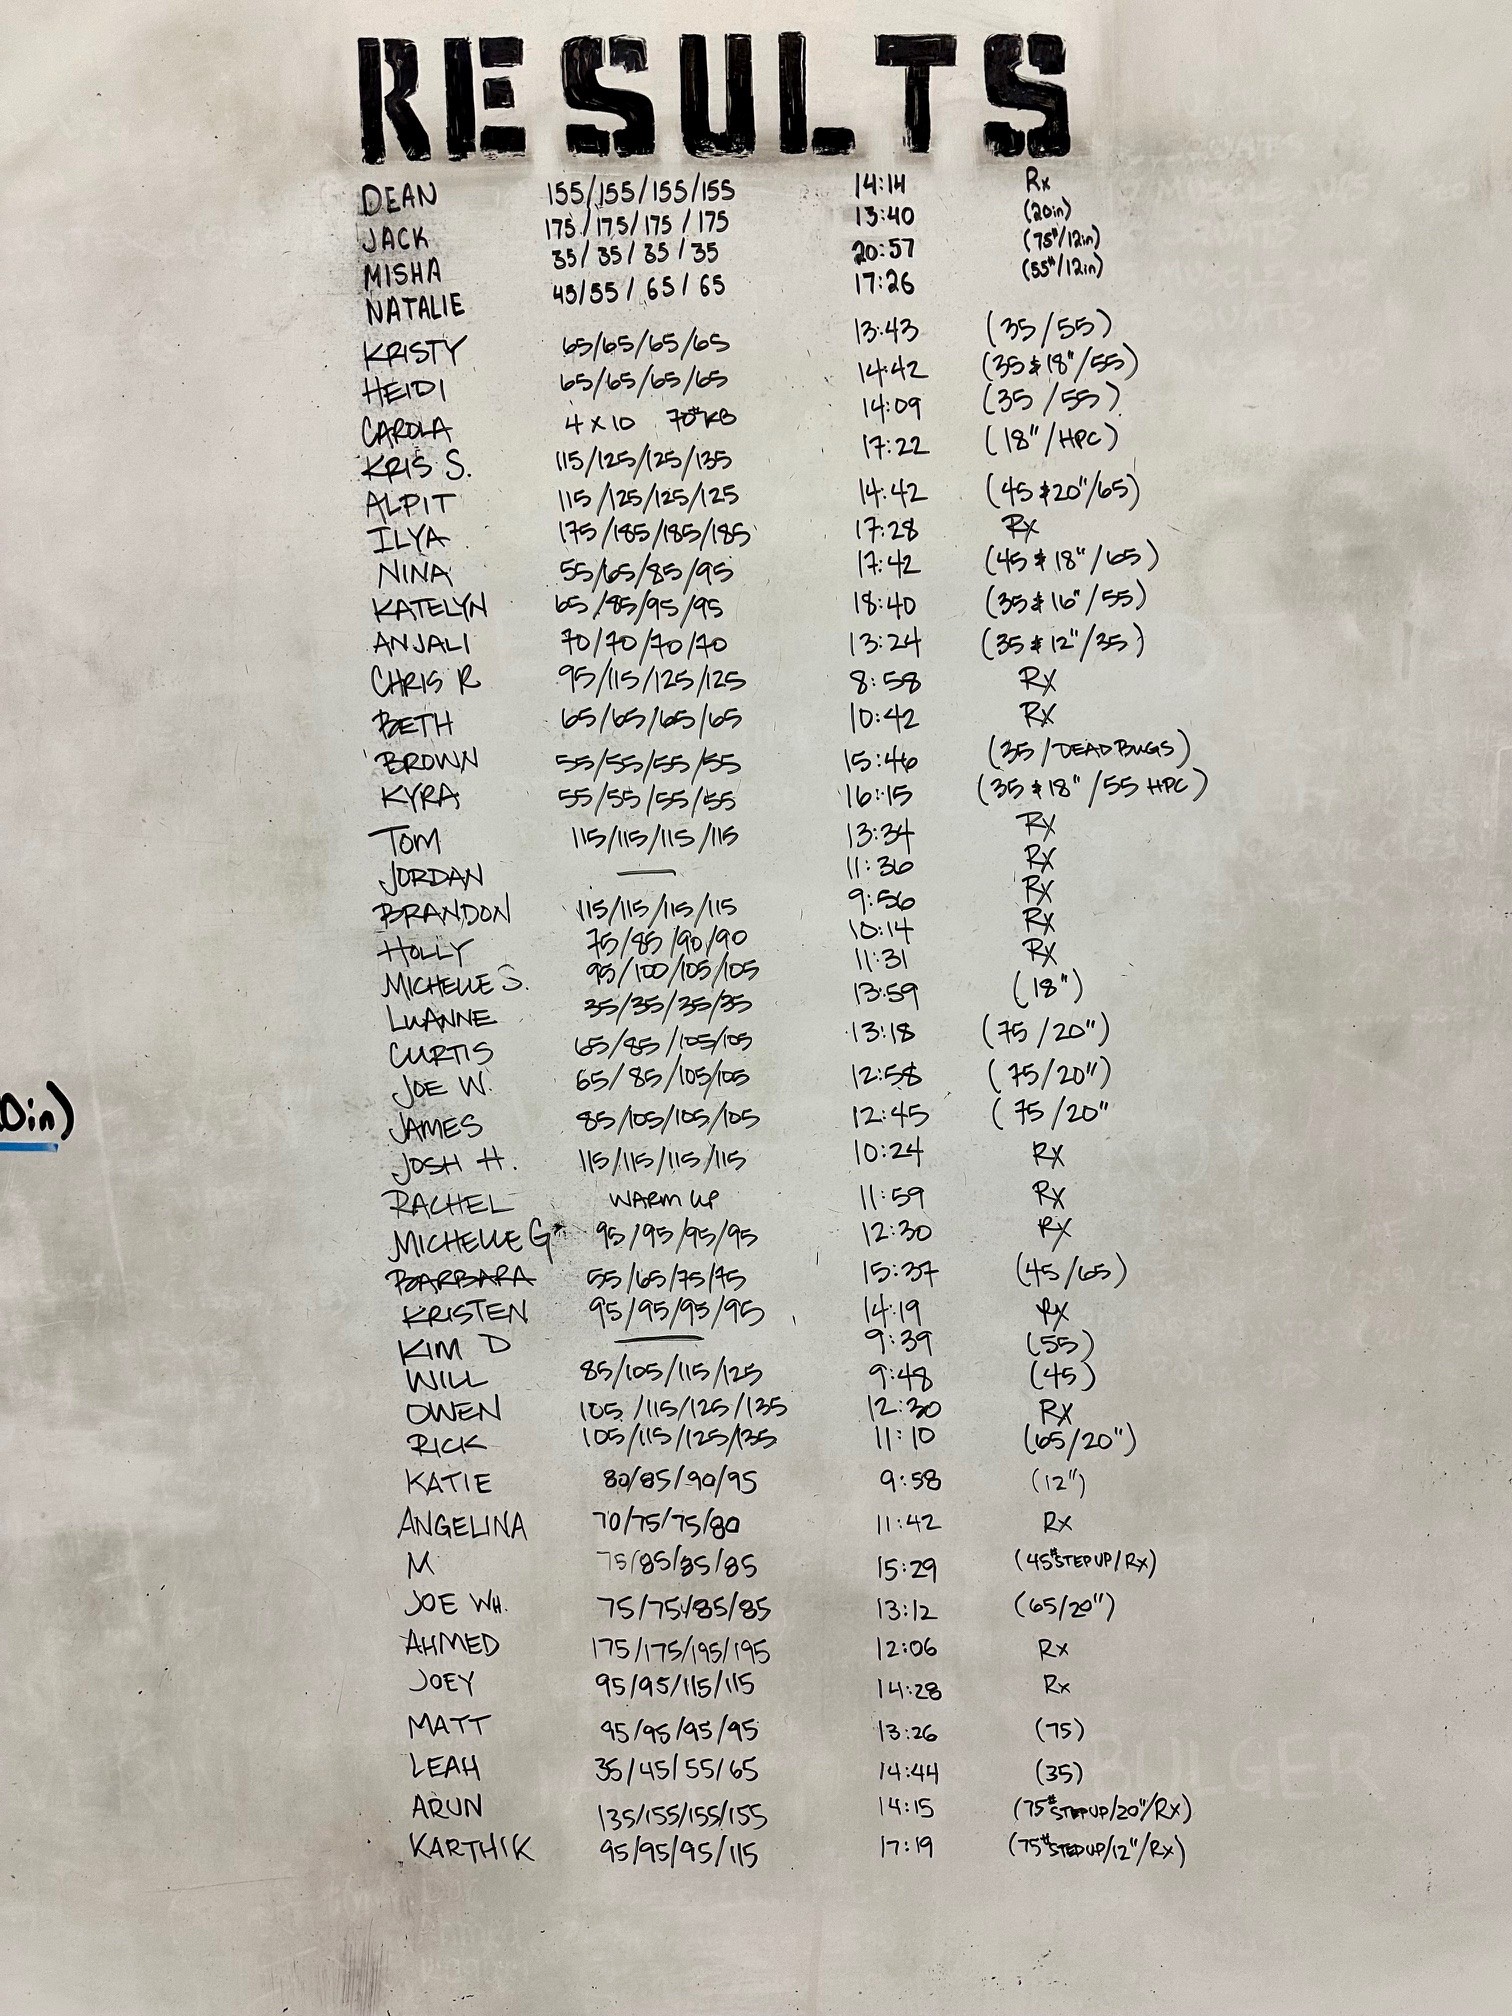 RESULTS
DEAN 155/155/155/155 14:14 Rx
JACK 175/175/175/175 13:40 (20in)
MISHA 35/35/35/35 20:57 (75#/12in)
NATALIE 45/55/65/65 17:26 (55#/12in)
KRISTY 65/65/65/65 13:43 (35/55)
HEIDI 65/65/65/65 14:42 (35 & 18"/55)
CAROLA 4 x 10 70# KB 14:09 (35/55)
KRIS S. 115/125/125/135 17:22 (18"/HPC)
ALPIT 115/125/125/125 14:42 (45 & 20"/65)
ILYA 175/185/185/185 17:28 Rx
NINA 55/65/85/95 17:42 (45 & 18"/65)
KATELYN 65/85/95/95 18:40 (35 & 16"/55)
ANJALI 70/70/70/70 13:24 (35 & 12"/35)
CHRIS R 95/115/125/125 8:58 Rx
BETH 65/65/65/65 10:42 Rx
BROWN 55/55/55/55 15:46 (35/DEAD BUGS)
KYRA 55/55/55/55 16:15 (35 & 18"/55 HPC)
TOM 115/115/115/115 13:34 Rx
JORDAN — 11:36 Rx
BRANDON 115/115/115/115 9:56 Rx
HOLLY 75/85/90/90 10:14 Rx
MICHELLE S. 95/100/105/105 11:31 Rx
LUANNE 35/35/35/35 13:59 (18")
CURTIS 65/85/105/105 13:18 (75/20")
JOE W. 65/85/105/105 12:58 (75/20")
JAMES 85/105/105/105 12:45 (75/20"
JOSH H. 115/115/115/115 10:24 Rx
RACHEL WARM UP 11:59 Rx
MICHELLE G* 95/95/95/95 12:30 Rx
BARBARA 55/65/75/75 15:37 (45/65)
KRISTEN 95/95/95/95 14:19 Rx
KIM D — 9:39 (55)
WILL 85/105/115/125 9:48 (45)
OWEN 105/115/125/135 12:30 Rx
RICK 105/115/125/135 11:10 (65/20")
KATIE 80/85/90/95 9:58 (12")
ANGELINA 70/75/75/80 11:42 Rx
M 75/85/85/85 15:29 (45# STEP UP/Rx)
JOE WH. 75/75/85/85 13:12 (65/20")
AHMED 175/175/195/195 12:06 Rx
JOEY 95/95/115/115 14:28 Rx
MATT 95/95/95/95 13:26 (75)
LEAH 35/45/55/65 14:44 (35)
ARUN 135/155/155/155 14:15 (75# STEP UP/20"/Rx)
KARTHIK 95/95/95/115 17:19 (75# STEP UP/12"/Rx)
0in)
BULGE